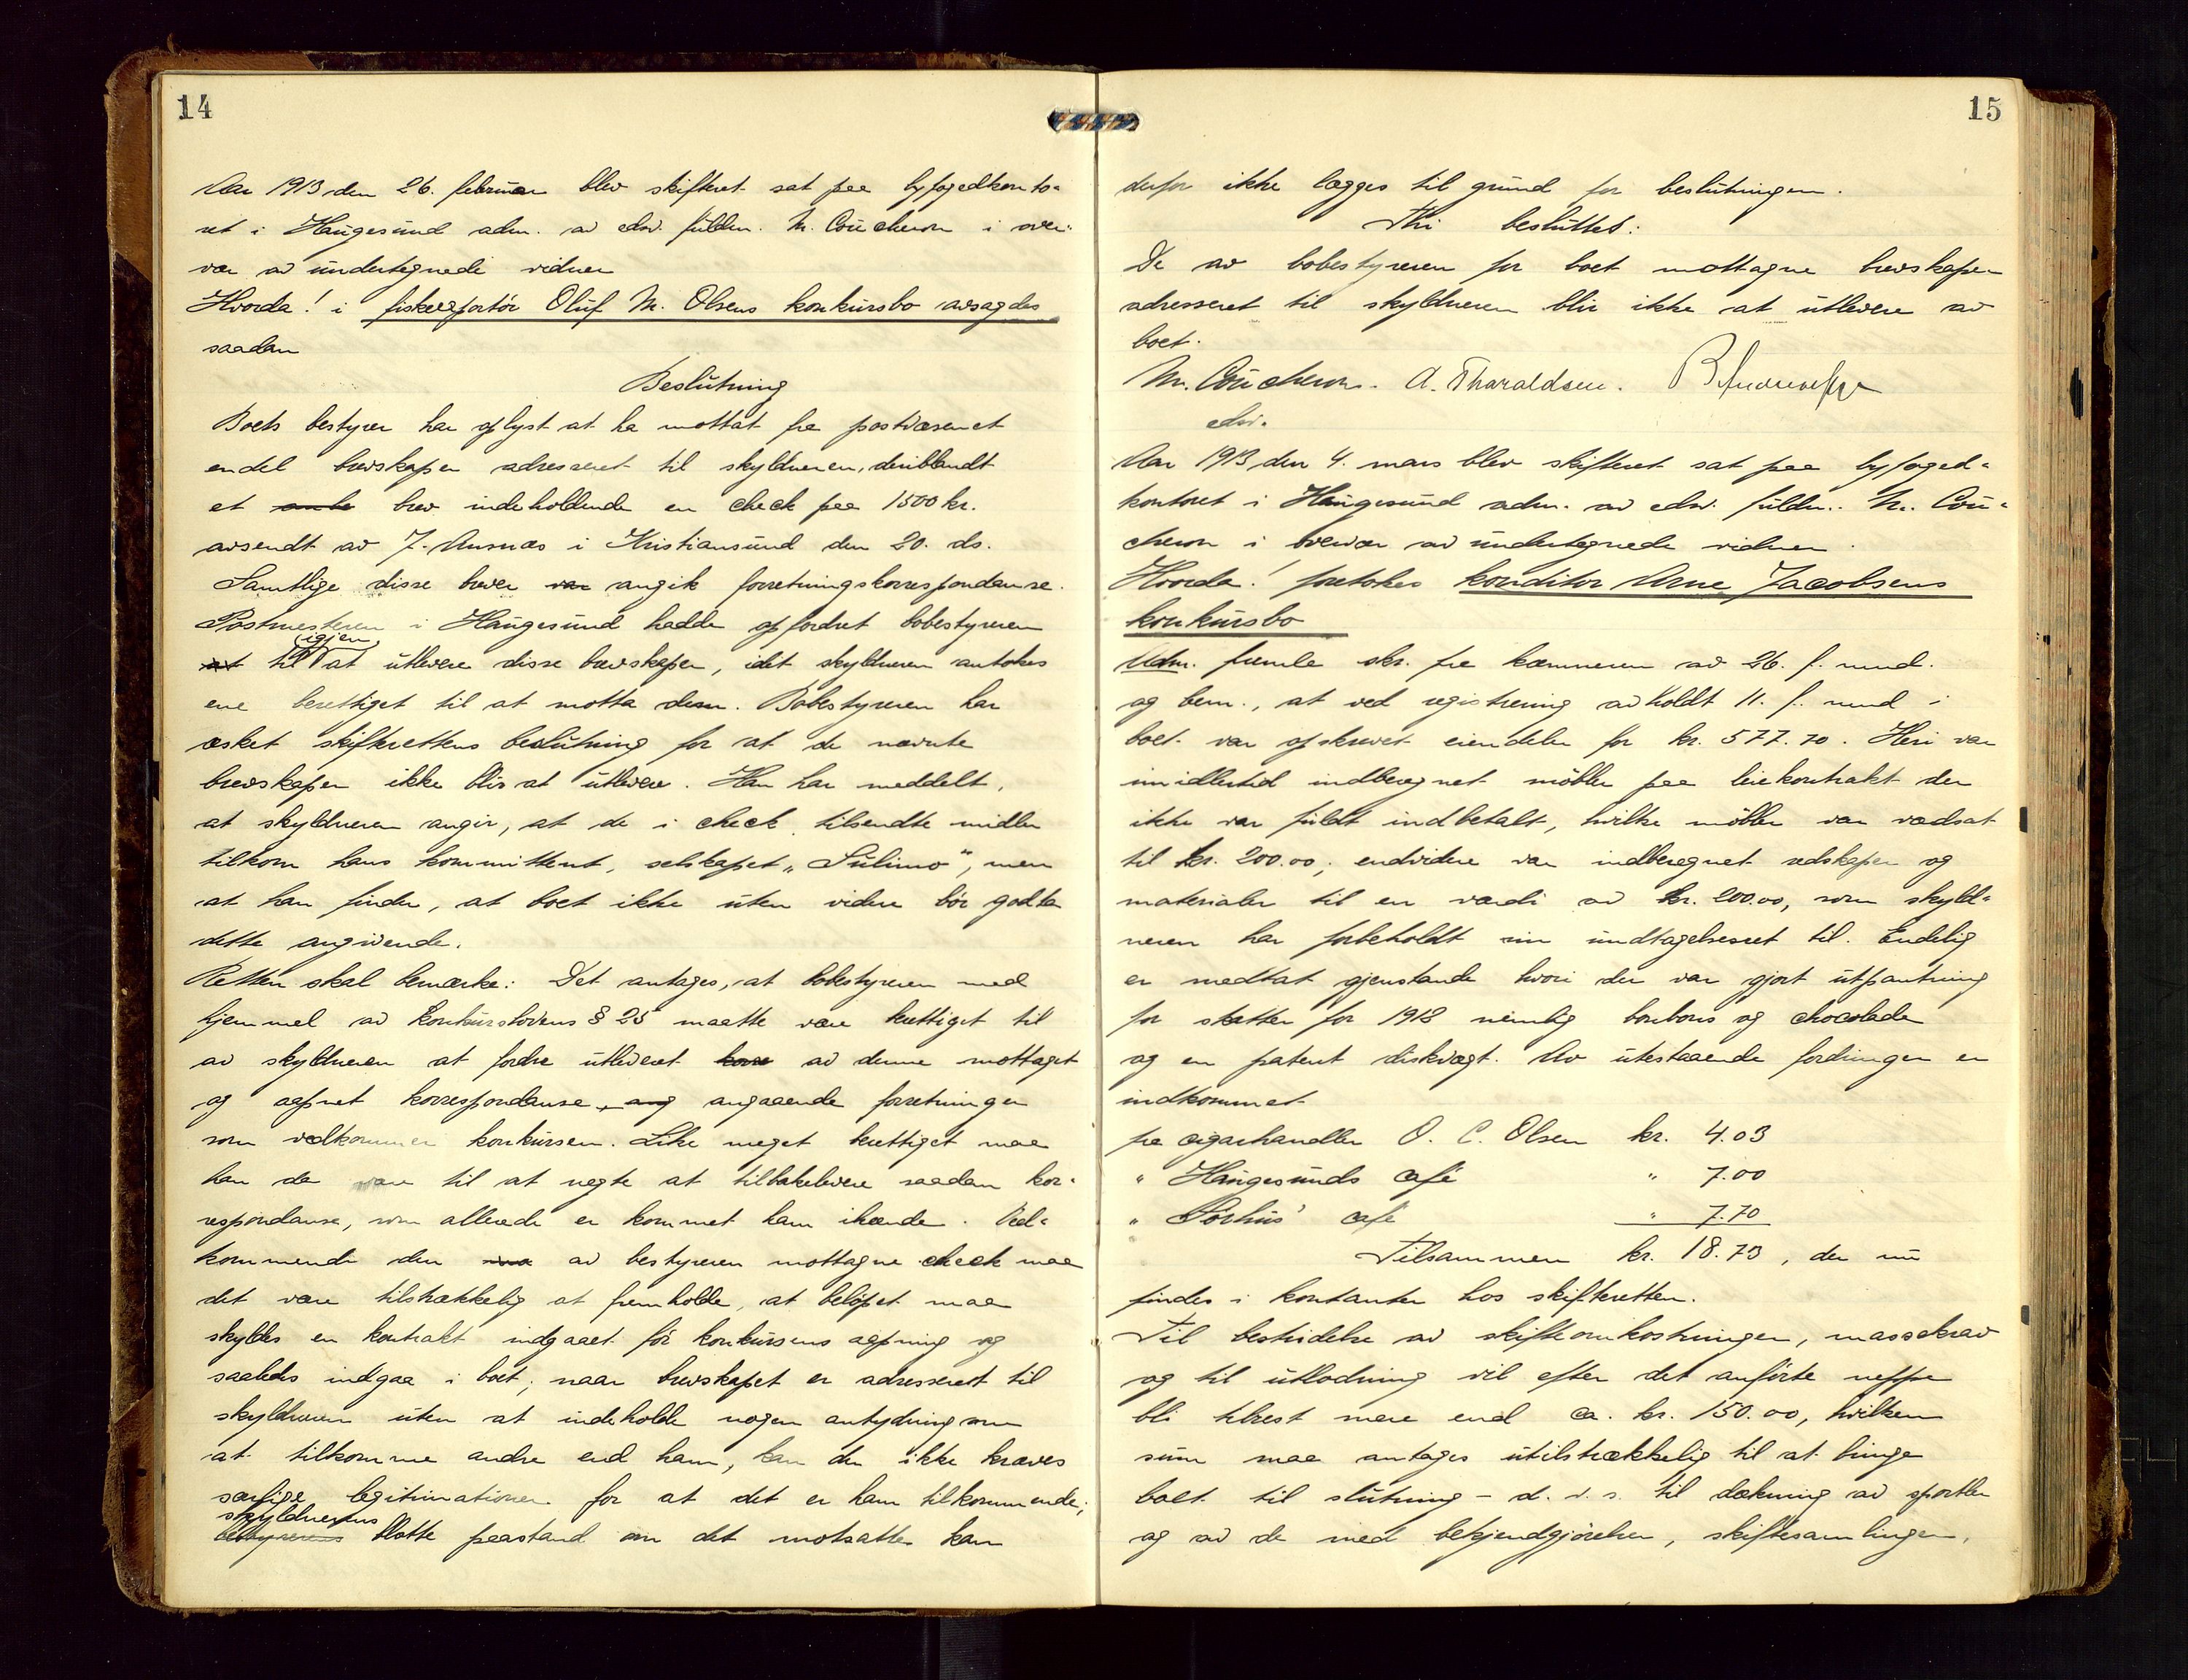 14
Aar 1913 den 26. februar blev skifteret sat paa byfogedkonto-
ret i Haugesund adm. av edsv. fuldm. M. Coucheron i over-
vær av undertegnede vidner
Hvorda! i fiskeexportör Oluf M. Olsens konkursbo avsagdes
saadan
Beslutning
Boets bestyrer har oplyst at ha mottat fra postvæsenet
endel brevskaper adresseret til skyldneren, deriblandt
et brev indeholdende en check paa 1500 kr.
avsendt av J. Ausnæs i Kristiansund den 20. ds.
Samtlige disse brever var angik forretningskorrespondanse.
Postmesteren i Haugesund hadde opfordret bobestyreren
at til (igjen) at utlevere disse brevskaper, idet skyldneren antokes
ene berettiget til at motta dem. Bobestyreren har
æsket skifterettens beslutning for at de nævnte
brevskaper ikke blir at utlevere. Han har meddelt,
at skyldneren angir, at de i check tilsendte midler
tilkom hans kommittent, selskapet „Sulimo“, men
at han finder, at boet ikke uten videre bör godta
dette angivende.
Retten skal bemærke: Det antages, at bobestyreren med
hjemmel av konkurslovens § 25 maatte være berettiget til
av skyldneren at fordre utleveret av denne mottaget
og aapnet korrespondanse, ang angaaende forretninger
som vedkommer konkursen. Like meget berettiget maa
han da være til at negte at tilbakelevere saadan kor-
respondanse, som allerede er kommet ham ihænde. Ved-
kommende den av bestyreren mottagne check maa
det være tilstrækkelig at fremholde, at belöpet maa
skyldes en kontrakt indgaaet för konkursens aapning og
saaledes indgaa i boet; naar brevskapet er adresseret til
skyldneren uten at indeholde nogen antydning om
at tilkomme andre end ham, kan der ikke kræves
særlige legitimationer for at det er ham tilkommende;
skyldnerens
bestyrerens blotte paastand om det motsatte kan
15
derfor ikke lægges til grund for beslutningen.
Thi besluttet:
De av bobestyreren for boet mottagne brevskaper
adresseret til skyldneren blir ikke at utlevere av
boet.
M. Coucheron. A. Tharaldsen.
edsv.
Aar 1913 den 4. mars blev skifteret sat paa byfoged-
kontoret i Haugesund adm. av edsv. fuldm. M. Cou-
cheron i overvær av undertegnede vidner.
Hvorda! foretokes konditor Arne Jacobsens
konkursbo
Adm. fremla skr. fra kæmneren av 26. f. mnd.
og bem., at ved registrering avholdt 11. f. mnd i
boet var opskrevet eiendeler for kr. 577.70. Heri var
imidlertid indberegnet möbler paa leiekontrakt der
ikke var fuldt indbetalt, hvilke möbler var værdsat
til kr. 200.00; endvidere var indberegnet redskaper og
materialer til en værdi av kr. 200.00, som skyld-
neren har forbeholdt sin undtagelsesret til. Endelig
er medtat gjenstande hvori der var gjort utpantning
for skatter for 1912 nemlig bonbons og chocolade
og en patent diskvægt. Av utestaaende fordringer er
indkommet
fra cigarhandler O. C. Olsen kr. 4.03
" Haugesunds café " 7.00
" Sörhus' café " 7.70
Tilsammen kr. 18.73, der nu
findes i kontanter hos skifteretten.
Til bestridelse av skifteomkostninger, massekrav
og til utlodning vil efter det anförte neppe
bli tilrest mere end ca. kr. 150.00, hvilken
sum maa antages utilstrækkelig til at bringe
boet til slutning - d. v. s. til dækning av sportler
og av de med bekjendtgjörelser, skiftesamlinger,